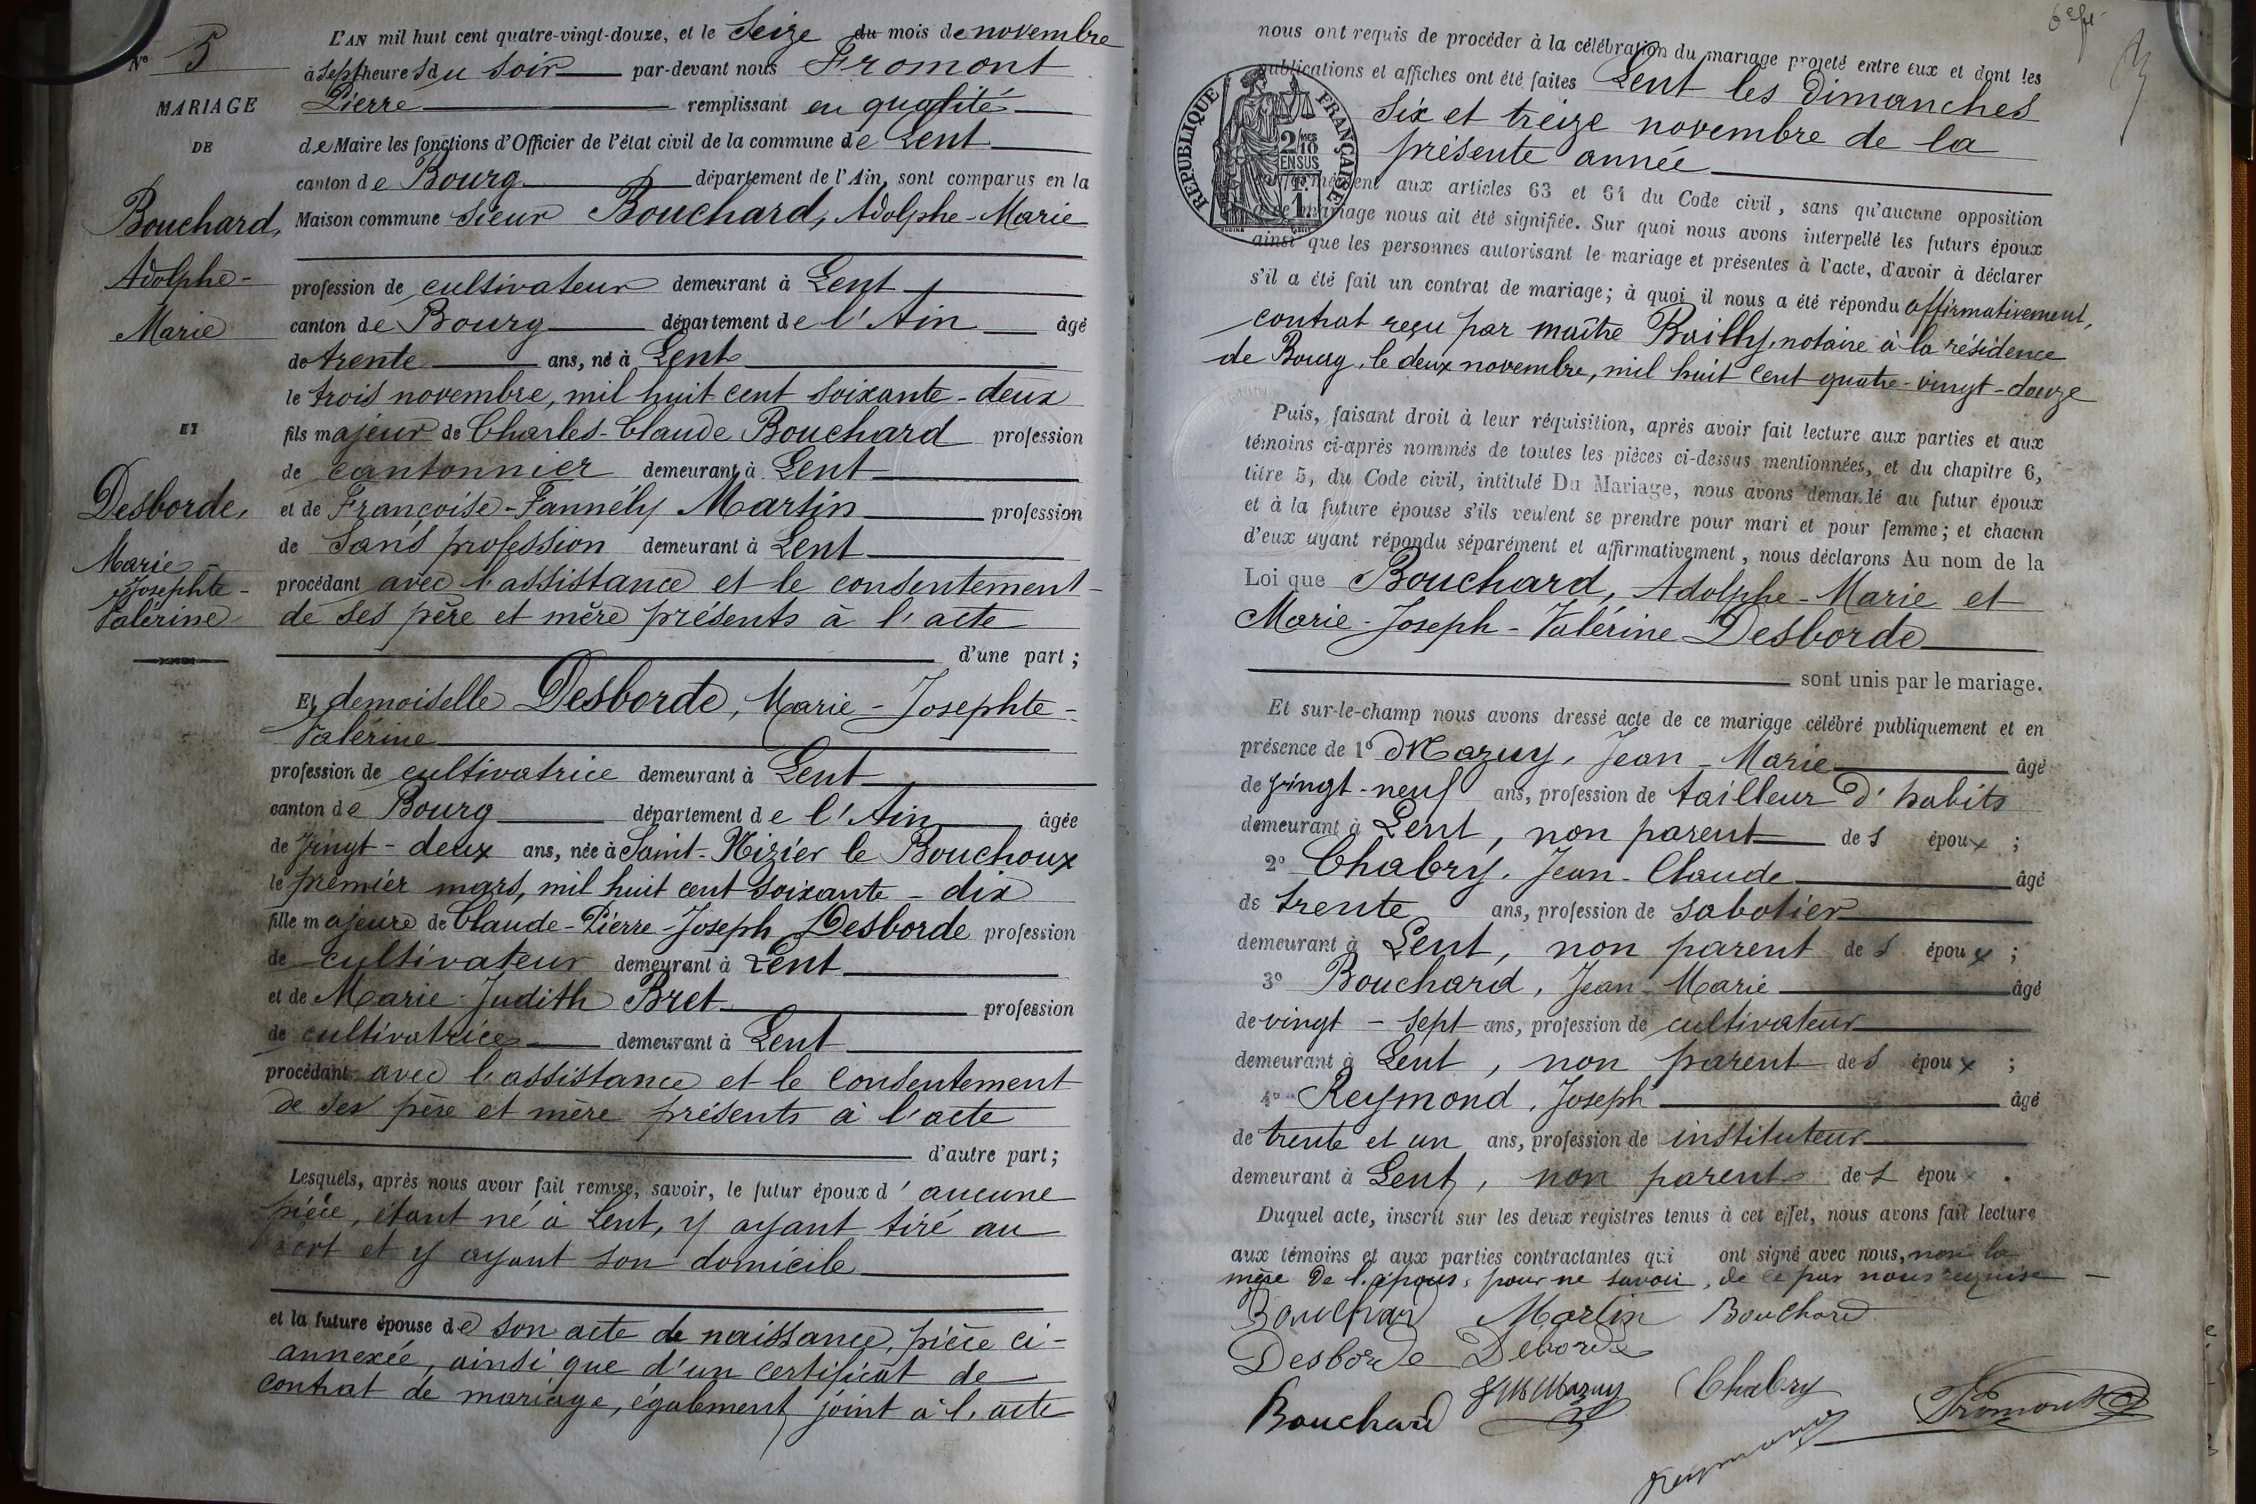 L'AN mil huit cent quatre-vingt-douze, et le Seize du mois de novembre
No 5
à sept heures du soir par-devant nous Fromont
MARIAGE
Pierre remplissant en qualité
DE
de Maire les fonctions d'Officier de l'état civil de la commune de Lent
canton de Bourg département de l'Ain, sont comparus en la
Bouchard,
Maison commune Sieur Bouchard, Adolphe-Marie
Adolphe-
profession de cultivateur demeurant à Lent
Marie
canton de Bourg département de l'Ain âgé
de trente ans, né à Lent
le trois novembre, mil huit cent soixante-deux
ET
fils majeur de Charles-Claude Bouchard profession
de cantonnier demeurant à Lent
Desborde,
et de Françoise-Fannély Martin profession
de sans profession demeurant à Lent
Marie-
Josephte-
procédant avec l'assistance et le consentement
Valérine
de ses père et mère présents à l'acte
d'une part ;
Et demoiselle Desborde, Marie-Josephte-
Valérine
profession de cultivatrice demeurant à Lent
canton de Bourg département de l'Ain âgée
de vingt-deux ans, née à Saint-Nizier le Bouchoux
le premier mars, mil huit cent soixante-dix
fille majeure de Claude-Pierre-Joseph Desborde profession
de cultivateur demeurant à Lent
et de Marie-Judith Bret profession
de cultivatrice demeurant à Lent
procédant avec l'assistance et le consentement
de ses père et mère présents à l'acte
d'autre part ;
Lesquels, après nous avoir fait remise, savoir, le futur époux d'aucune
pièce, étant né à Lent, y ayant tiré au
sort et y ayant son domicile
et la future épouse de son acte de naissance, pièce ci-
annexée, ainsi que d'un certificat de
contrat de mariage, également joint à l'acte
nous ont requis de procéder à la célébration du mariage projeté entre eux et dont les
publications et affiches ont été faites Lent les dimanches
six et treize novembre de la
présente année
RÉPUBLIQUE FRANÇAISE
2/10 EN SUS
1 F.
conformément aux articles 63 et 64 du Code civil, sans qu'aucune opposition
à ce mariage nous ait été signifiée. Sur quoi nous avons interpellé les futurs époux
ainsi que les personnes autorisant le mariage et présentes à l'acte, d'avoir à déclarer
s'il a été fait un contrat de mariage ; à quoi il nous a été répondu affirmativement,
contrat reçu par maître Bailly, notaire à la résidence
de Bourg, le deux novembre, mil huit cent quatre-vingt-douze
Puis, faisant droit à leur réquisition, après avoir fait lecture aux parties et aux
témoins ci-après nommés de toutes les pièces ci-dessus mentionnées, et du chapitre 6,
titre 5, du Code civil, intitulé Du Mariage, nous avons demandé au futur époux
et à la future épouse s'ils veulent se prendre pour mari et pour femme ; et chacun
d'eux ayant répondu séparément et affirmativement, nous déclarons Au nom de la
Loi que Bouchard, Adolphe-Marie et
Marie-Joseph-Valérine Desborde
sont unis par le mariage.
Et sur-le-champ nous avons dressé acte de ce mariage célébré publiquement et en
présence de 1° Mazuy, Jean-Marie âgé
de vingt-neuf ans, profession de tailleur d'habits
demeurant à Lent, non parent des époux ;
2° Chabry, Jean-Claude âgé
de trente ans, profession de sabotier
demeurant à Lent, non parent des époux ;
3° Bouchard, Jean-Marie âgé
de vingt-sept ans, profession de cultivateur
demeurant à Lent, non parent des époux ;
4° Reymond, Joseph âgé
de trente et un ans, profession de instituteur
demeurant à Lent, non parent des époux.
Duquel acte, inscrit sur les deux registres tenus à cet effet, nous avons fait lecture
aux témoins et aux parties contractantes qui ont signé avec nous, non la
mère de l'époux, pour ne savoir, de ce par nous requise
Bouchard Martin Bouchard
Desborde Deborde
JM Mazuy Chabry Fromont
Bouchard
Reymond